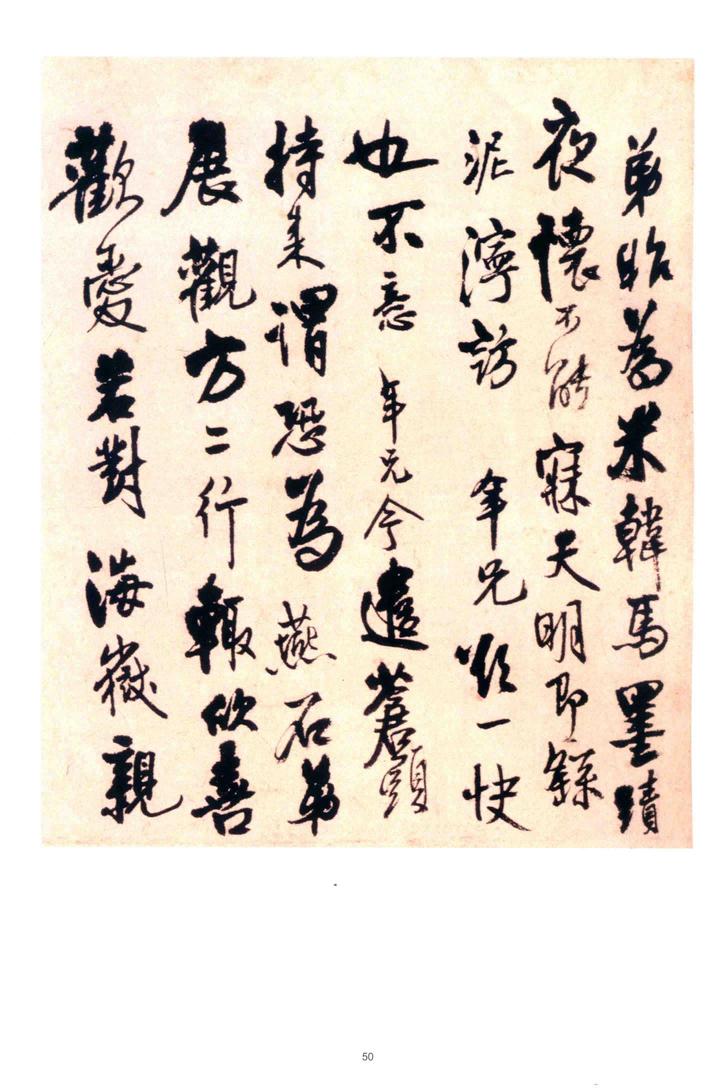 弟昨為米韓馬墨蹟
夜懷不能寐天明即録
泥濘訪年兄以一快
也不意年兄今遣蒼頭
持来謂恐為燕石弟
展觀方二行輙欣喜
歡愛若對海嶽親
50